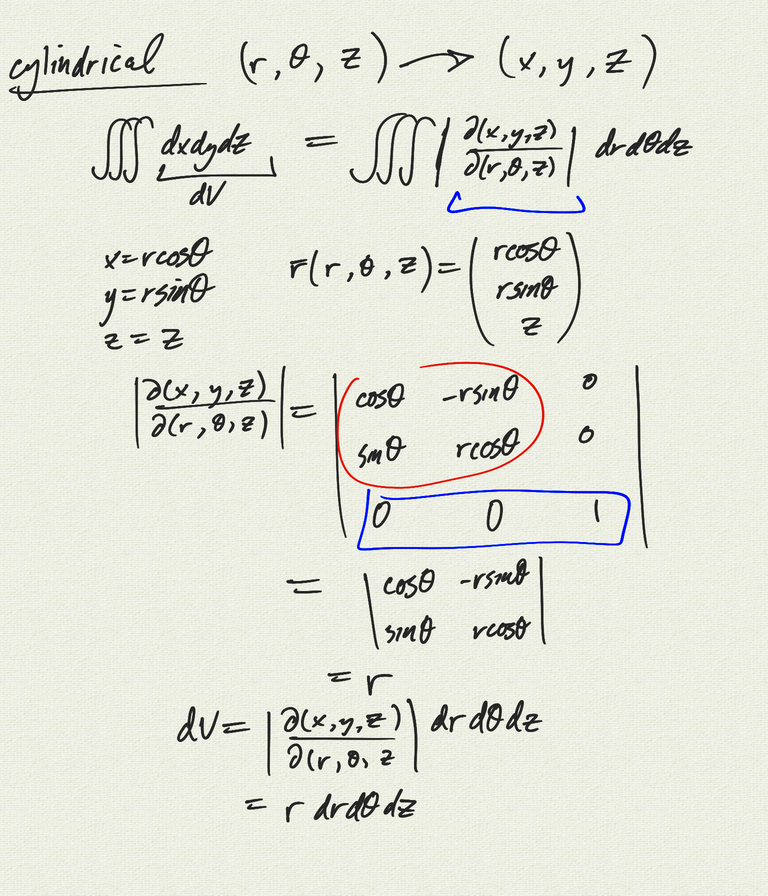 cylindrical (r, θ, z) → (x, y, z)
∭ dxdydz = ∭ |∂(x,y,z)/∂(r,θ,z)| drdθdz
dV
x=rcosθ
y=rsinθ
z = z
F(r, θ, z) = (rcosθ
rsinθ
z)
|∂(x,y,z)/∂(r,θ,z)| = |cosθ -rsinθ 0
sinθ rcosθ 0
0 0 1|
= |cosθ -rsinθ|
|sinθ rcosθ|
= r
dV = |∂(x,y,z)/∂(r,θ,z| drdθdz
= r drdθdz